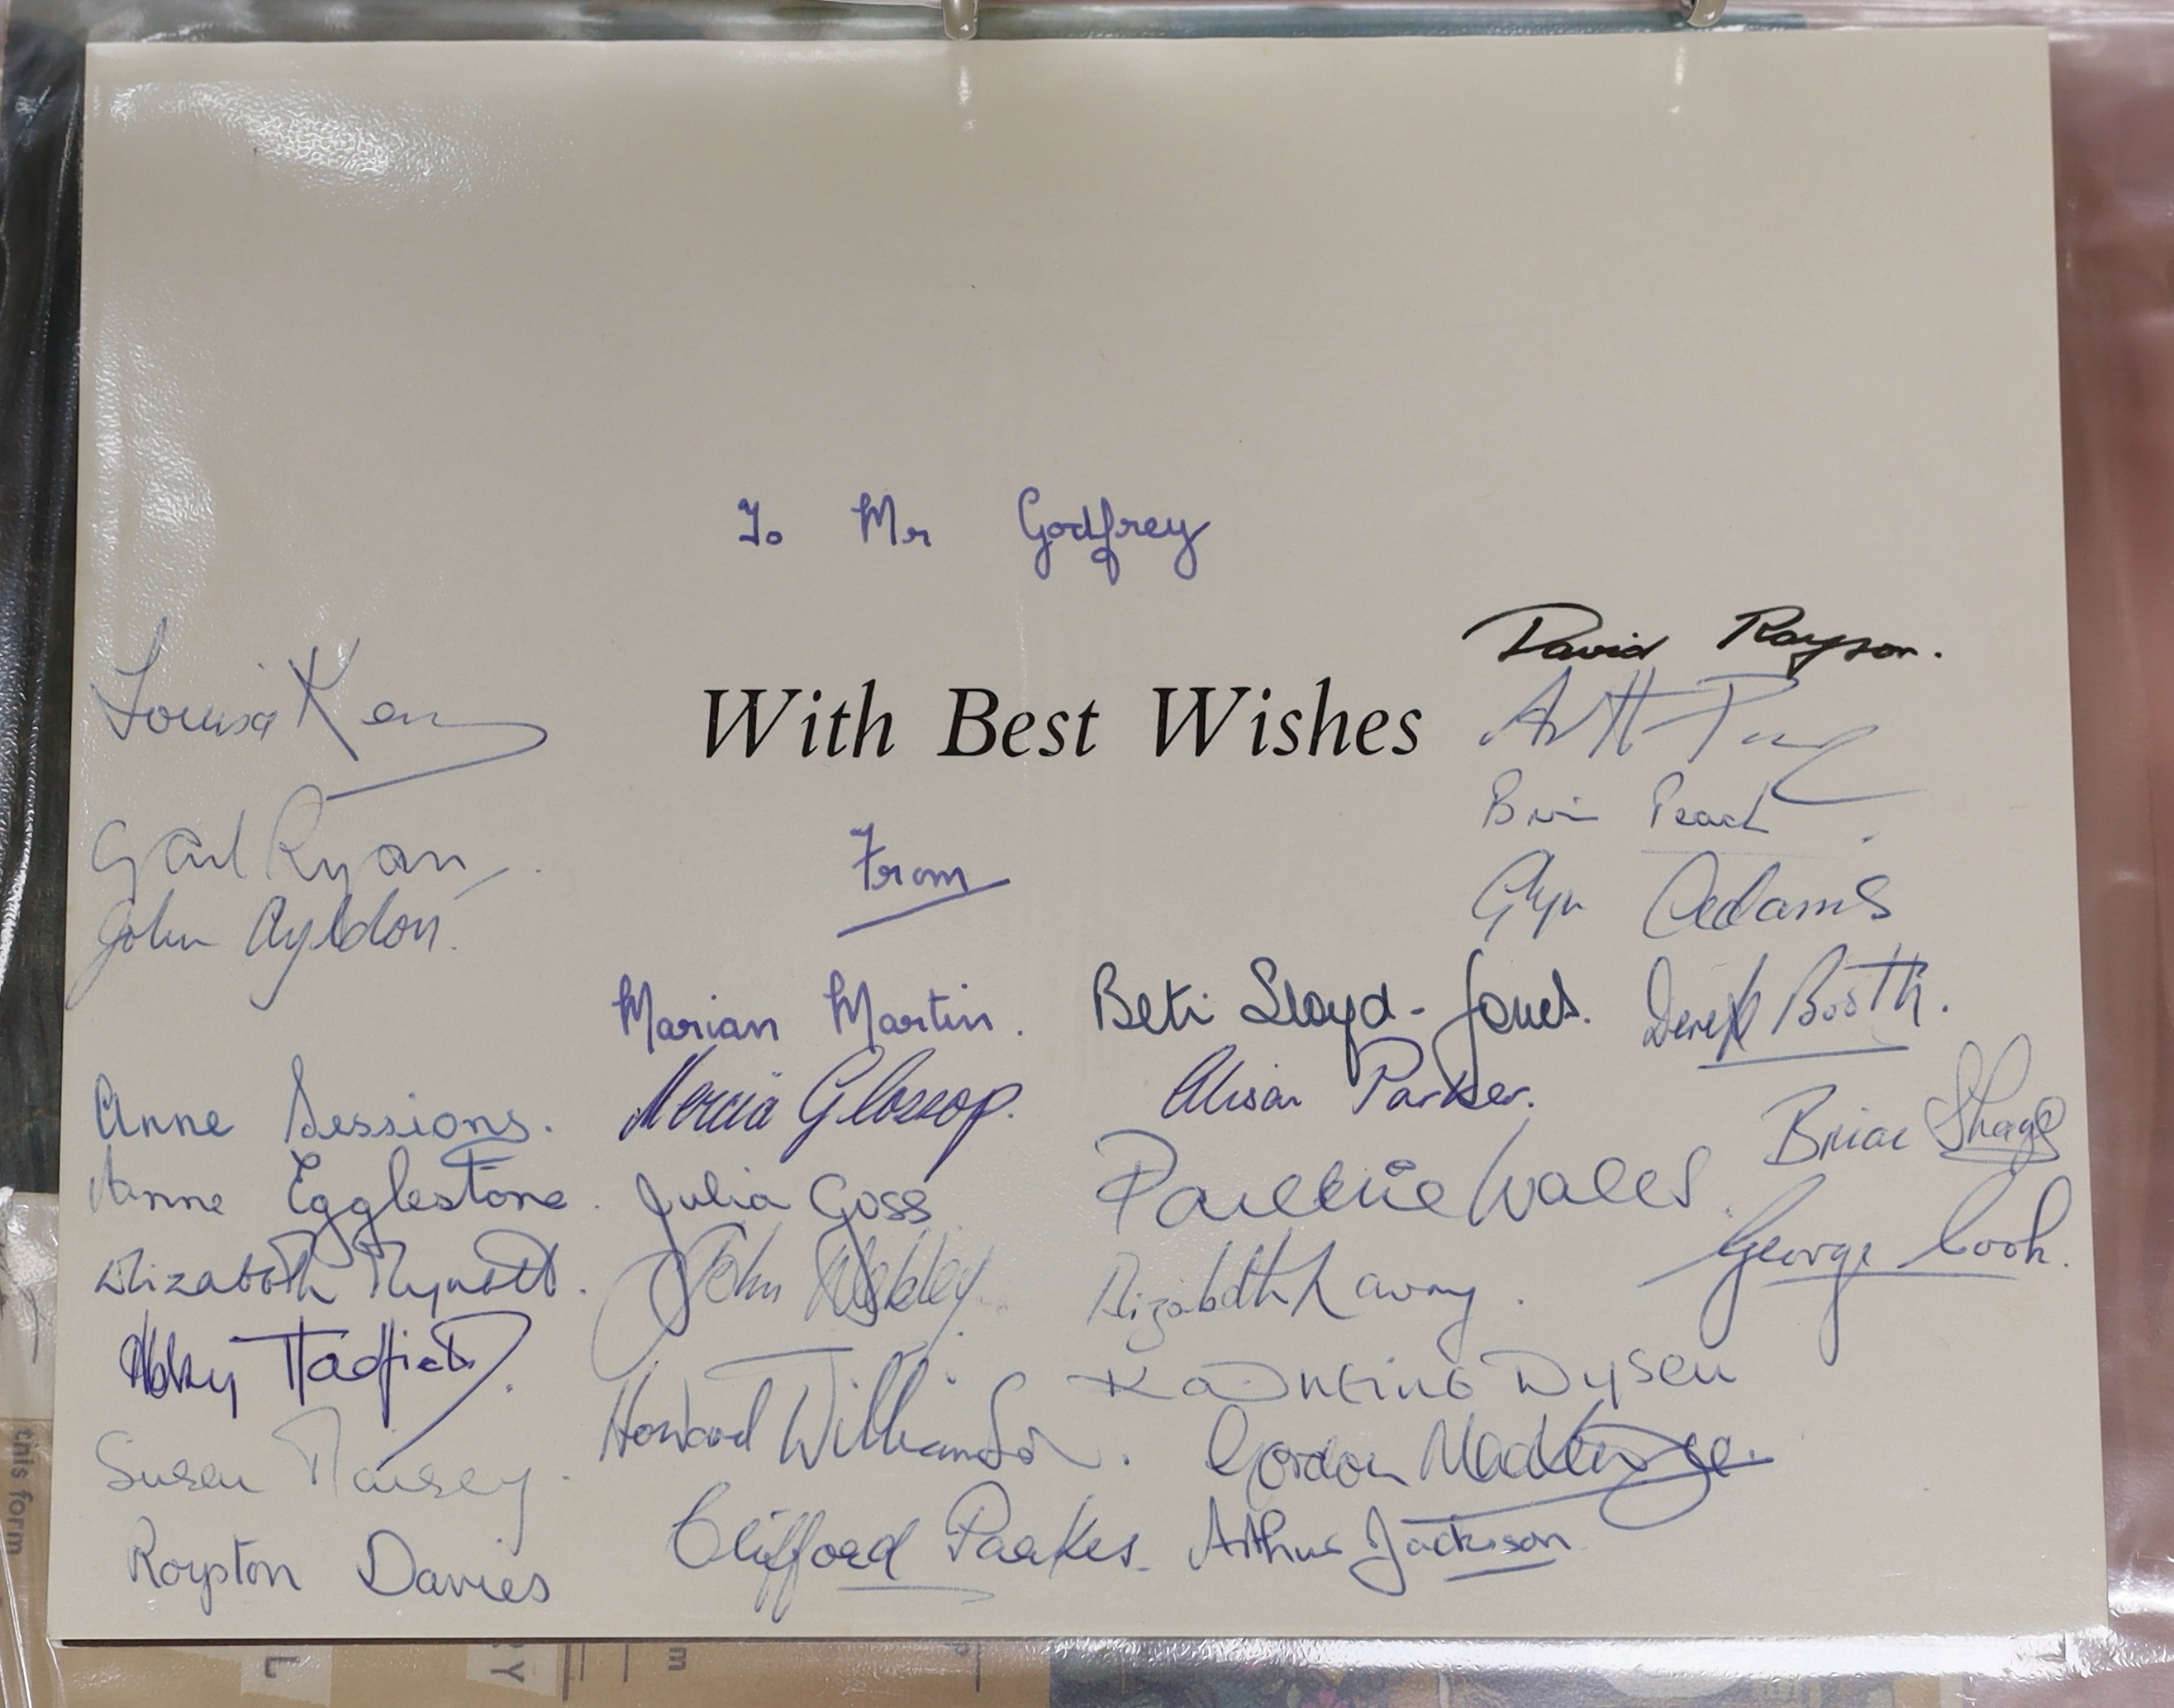 To Mr Godfrey
With Best Wishes
From
Louisa
Gail Ryan.
John Ayldon.
Anne Sessions.
Anne Egglestone.
Elizabeth
Abby Hadfield.
Susan
Royston Davies
Marian Martin.
Mercia Glossop.
Julia Goss
John
Howard Williamson.
Clifford Parkes.
David Rayson.
Peach
Glyn Adams
Beti Lloyd-Jones.
Derek Booth.
Alison Parker.
Pauline Wales.
Brian
George Cook.
Elizabeth
Dyson
Gordon MacKenzie.
Arthur Jackson
this form